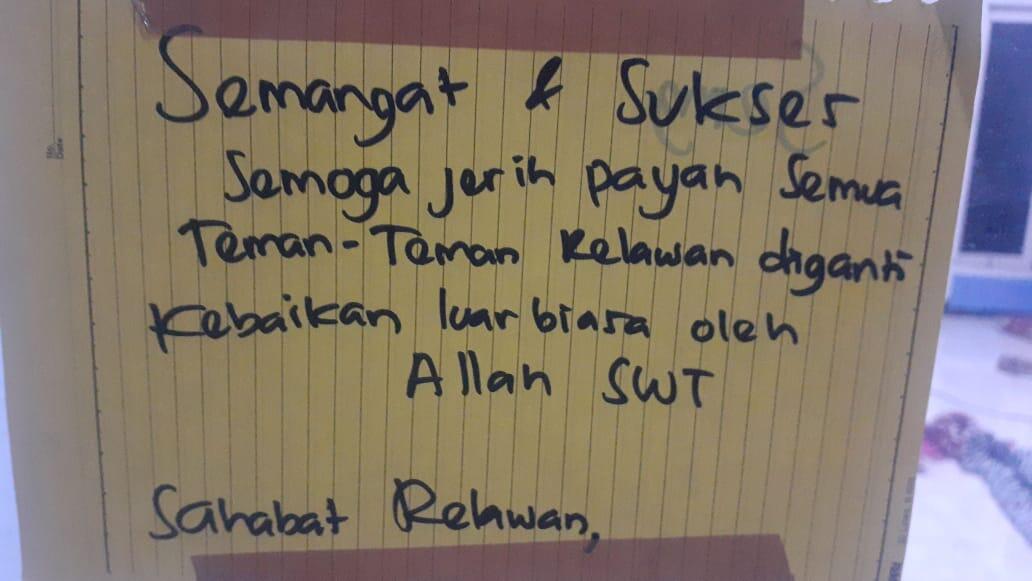 Semangat & Sukses
Semoga jerih payah Semua
Teman-Teman Relawan diganti
Kebaikan luar biasa oleh
Allah SWT
Sahabat Relawan,